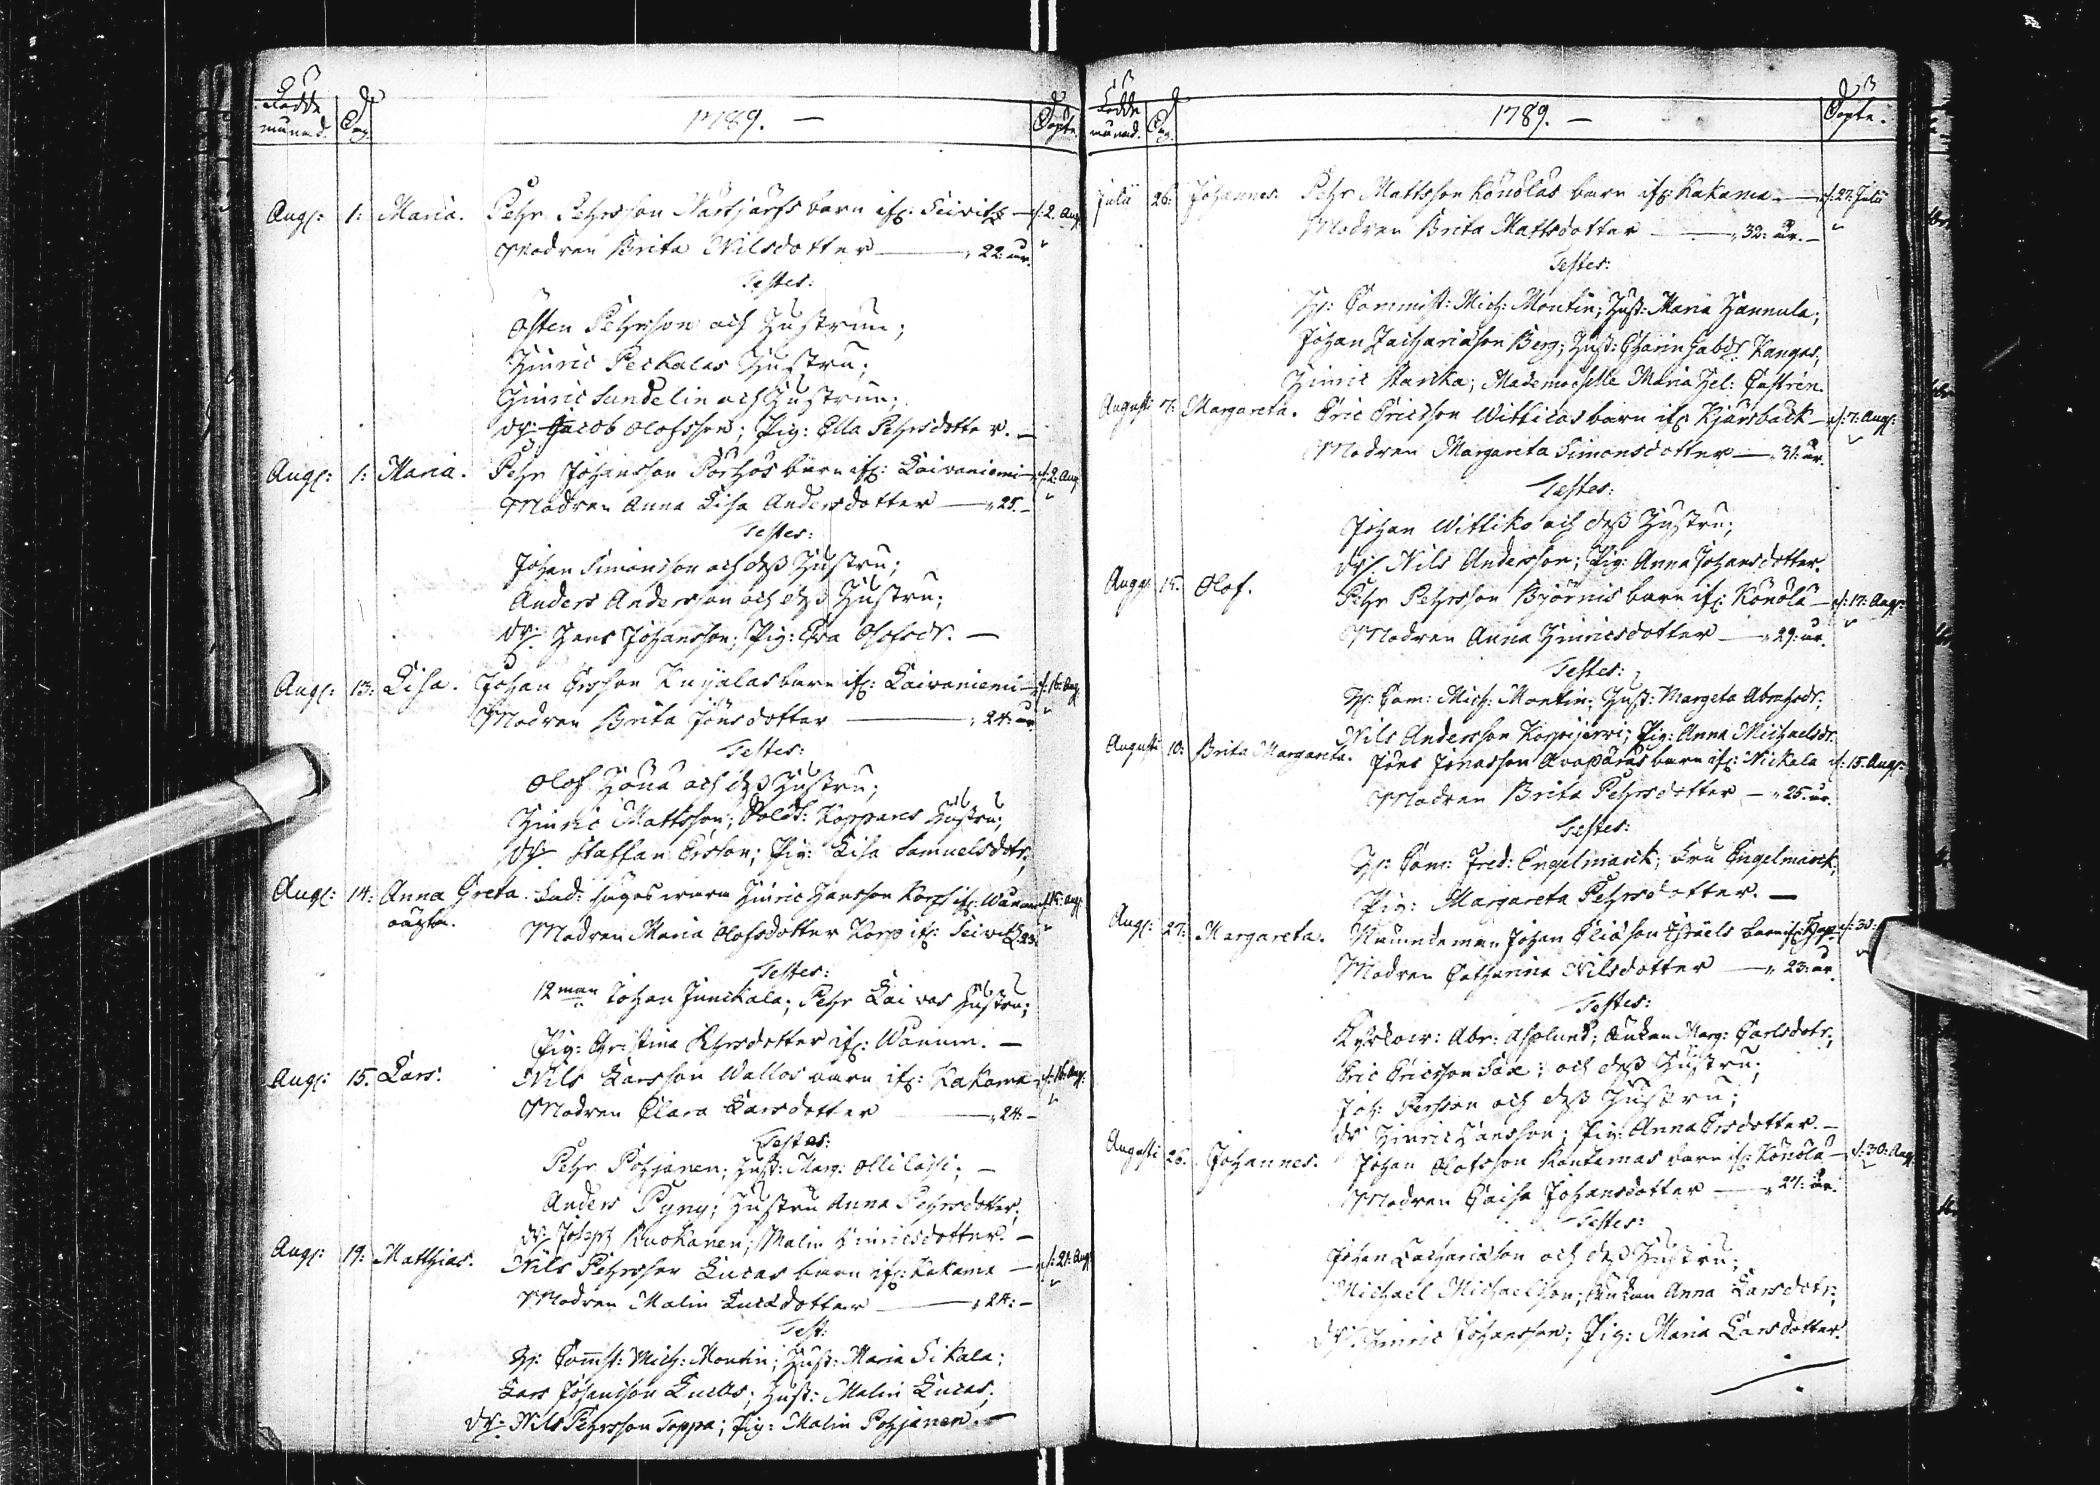 Födde månad. Dag. 1789. — Döpte.
Aug: 1: Maria. Pehr Pehrsson Närhjärfs barn if: Seivits — d: 2. Aug
Modren Brita Nilsdotter — 22: år.
Testes:
Östen Pehrson och Hustrun;
Hinric Peckalas Hustru;
Hinric Sundelin och Hustrun;
dr: Jacob Olofsson; Pig: Ella Pehrsdotter. —
Aug: 1: Maria. Pehr Johansson Pörhös barn if: Laivaniemi — d: 2: Aug
Modren Anna Lisa Andersdotter — 25. —
Testes:
Johan Simonsson och dess Hustru;
Anders Andersson och dess Hustru;
dr: Hans Johansson; Pig: Eva Olofsdr. —
Aug: 13: Lisa. Johan Ersson Knyälas barn if: Laivaniemi — d: 16: Aug
Modren Brita Jönsdotter — 24: år
Testes:
Olof och dess Hustru;
Hinric Mattsson; Sold: Koppares Hustru;
dr Staffan Ersson; Pig: Lisa Samuelsdotr;
Aug: 14: Anna Greta. Hinric Hansson Korp if: d: 15: Aug:
oägta. Modren Maria Olofsdotter Korp if: Seivits: 23:
Testes:
12man Johan Junckala; Pehr Laivas Hustru;
Pig: Christina Pehrsdotter if: Wånnin. —
Aug: 15. Lars. Nils Larsson Wallos barn if: Kakama — d: 16: Aug:
Modren Clara Larsdotter — 24: —
Testes:
Pehr Pohjanen; Hust: Marg: —
Anders Pyny; Hustru Anna Pehrsdotter;
dr: Joseph Ruokanen; Malin Hinricsdotter. —
Aug: 19: Matthias. Nils Pehrsson Lucas barn if: Kakama — d: 21: Aug
Modren Malin Lucasdotter — 24: —
Test:
H: Commst: Mich: Montin; Hust: Maria Sikala;
Lars Johansson Lucas; Hust: Malin Lucas;
dr: Nils Pehrsson Toppa; Pig: Malin Pohjanen. —
Födde månad. Dag. 1789. — Döpte.
Julii 26: Johannes. Pehr Mattsson Könöläs barn if: Kakama — d: 27: Julii
Modren Brita Mattsdotter — 32: år. —
Testes:
H: Commiss: Mich: Montin; Hust: Maria Hannula;
Johan Zachariason Berg; Hust: Charin Gabdr Kangas;
Hinric Harcka; Mademoiselle Maria Hel: Castrén.
Augusti 7: Margareta. Eric Ericsson Wittikos barn if: Kjärsbäck — d: 7: Aug:
Modren Margareta Simonsdotter — 31: år.
Testes:
Johan Wittiko och dess Hustru;
dr Nils Andersson; Pig: Anna Johansdotter.
Aug: 15: Olof. Pehr Pehrsson Björnis barn if: Könölä — d: 17: Aug:
Modren Anna Hinricsdotter — 29: år.
Testes:
H: Com: Mich: Montin; Hust: Margeta Abrahsdr;
Nils Andersson Korpijerwi; Pig: Anna Michaelsdr.
Augusti 10: Brita Margareta. Jöns Jönasson barn if: Nickala d: 15. Aug:
Modren Brita Pehrsdotter — 25: år.
Testes:
H: Com: Fred: Engelmarck; Fru Engelmarck;
Pig: Margareta Pehrsdotter. —
Aug: 27: Margareta. Nämndeman Johan Eliason Israels barn if: d: 30:
Modren Catharina Nilsdotter — 23: år.
Testes:
Kyrkovr: Abr: Asplund; Enkan Marg: Carlsdotr;
Eric Ericsson och dess Hustru;
Joh: Persson och dess Hustru;
dr Hinric Hansson; Pig: Anna Ersdotter. —
Augusti 26. Johannes. Johan Olofsson Kontkamas barn if: Könölä — d: 30: Aug
Modren Caisa Johansdotter — 27: år.
Testes:
Johan Zachariason och dess Hustru;
Michael Michaelsson; Enkan Anna Larsdotr;
dr: Hinric Johansson; Pig: Maria Larsdotter.